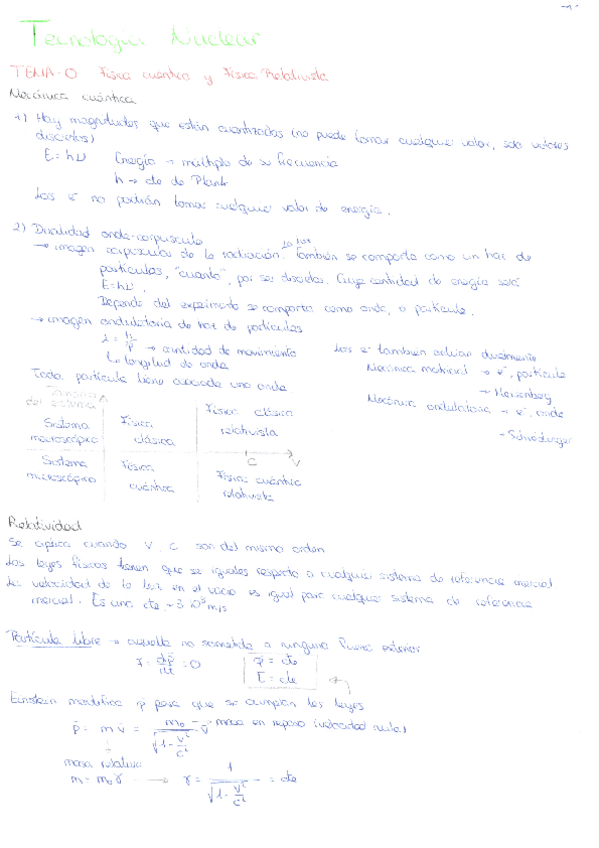 -1-
Tecnología Nuclear
TEMA-0 Física cuántica y Física Relativista
Mecánica cuántica
1) Hay magnitudes que están cuantizadas (no puede tomar cualquier valor, solo valores
discretos)
E = hν Energía → múltiplo de su frecuencia
h → cte de Plank
Los e⁻ no podrán tomar cualquier valor de energía.
2) Dualidad onda-corpúsculo
→ imagen corpuscular de la radiación. La luz también se comporta como un haz de
partículas, "cuanto", por ser discretas. Cuya cantidad de energía será
E=hν.
Depende del experimento se comporta como onda, o partícula.
→ imagen ondulatoria de haz de partículas
λ = h/p → cantidad de movimiento
↳ longitud de onda
Toda partícula tiene asociada una onda
Los e⁻ también actúan dualmente
Mecánica matricial → e⁻, partícula
→ Heisenberg
Mecánica ondulatoria → e⁻, onda
- Schrödinger
Tamaño
del sistema
Sistema macroscópico
Física clásica
Física clásica relativista
C V
Sistema microscópico
Física cuántica
Física cuántica relativista
Relatividad
Se aplica cuando V, C son del mismo orden
Las leyes físicas tienen que ser iguales respecto a cualquier sistema de referencia inercial
La velocidad de la luz en el vacío es igual para cualquier sistema de referencia
inercial. Es una cte, ~3·10⁸ m/s
Partícula libre → aquella no sometida a ninguna fuerza exterior
= dp̄/dt = 0
p̄ = cte
E = cte
Einstein modifica p̄ para que se cumplan las leyes
p̄ = m v̄ = m₀/√(1 - v²/c²) v̄ → masa en reposo (velocidad nula)
masa relativa
m = m₀γ → γ = 1/√(1 - v²/c²) = cte